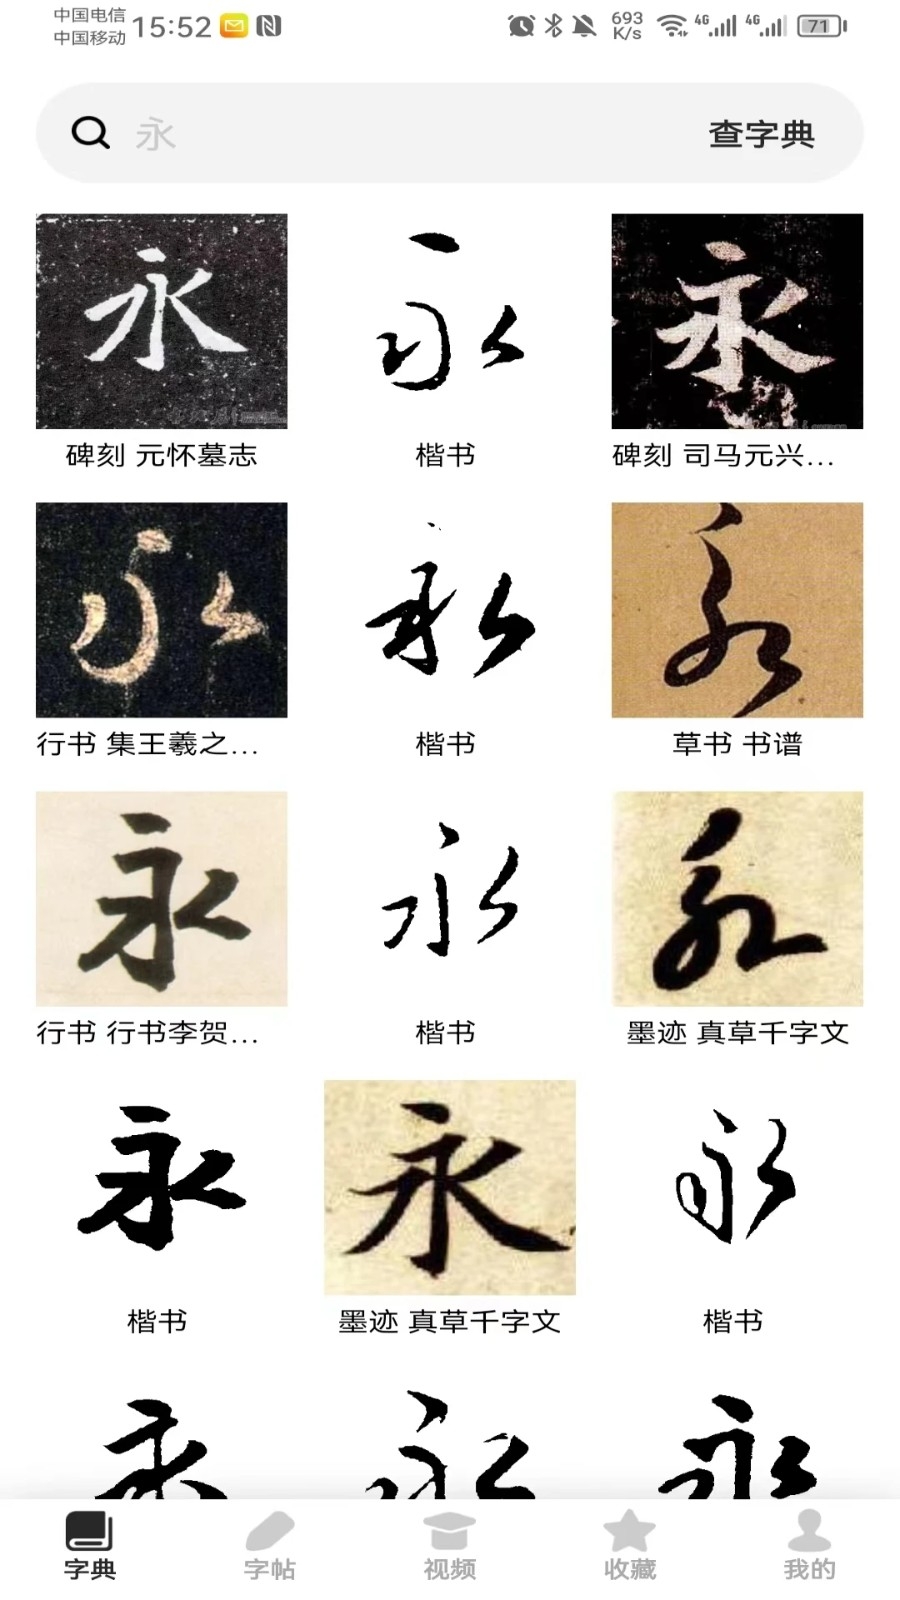 中国电信
中国移动
15:52
693
K/s
4G
4G
71
永
查字典
永 永 永
碑刻 元怀墓志
楷书
碑刻 司马元兴...
永 永 永
行书 集王羲之...
楷书
草书 书谱
永 永 永
行书 行书李贺...
楷书
墨迹 真草千字文
永 永 永
楷书
墨迹 真草千字文
楷书
永 永 永
字典
字帖
视频
收藏
我的